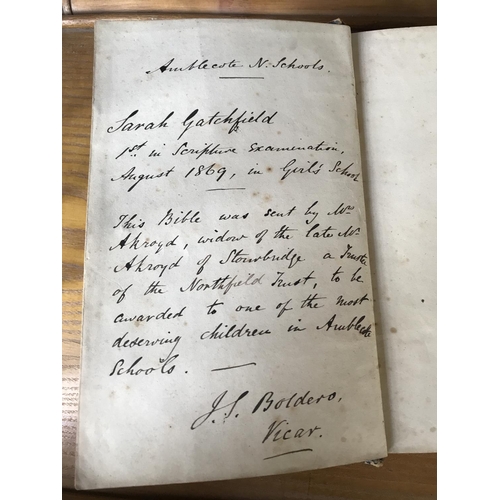 Amblecote N. Schools.
Sarah Gatchfield
1st. in Scripture Examination,
August 1869, in Girl's School
This Bible was sent by Mrs
Akroyd, widow of the late Mr
Akroyd of Stourbridge a Trustee
of the Northfield Trust, to be
awarded to one of the most
deserving children in Amblecote
Schools.
J. S. Boldero,
Vicar.